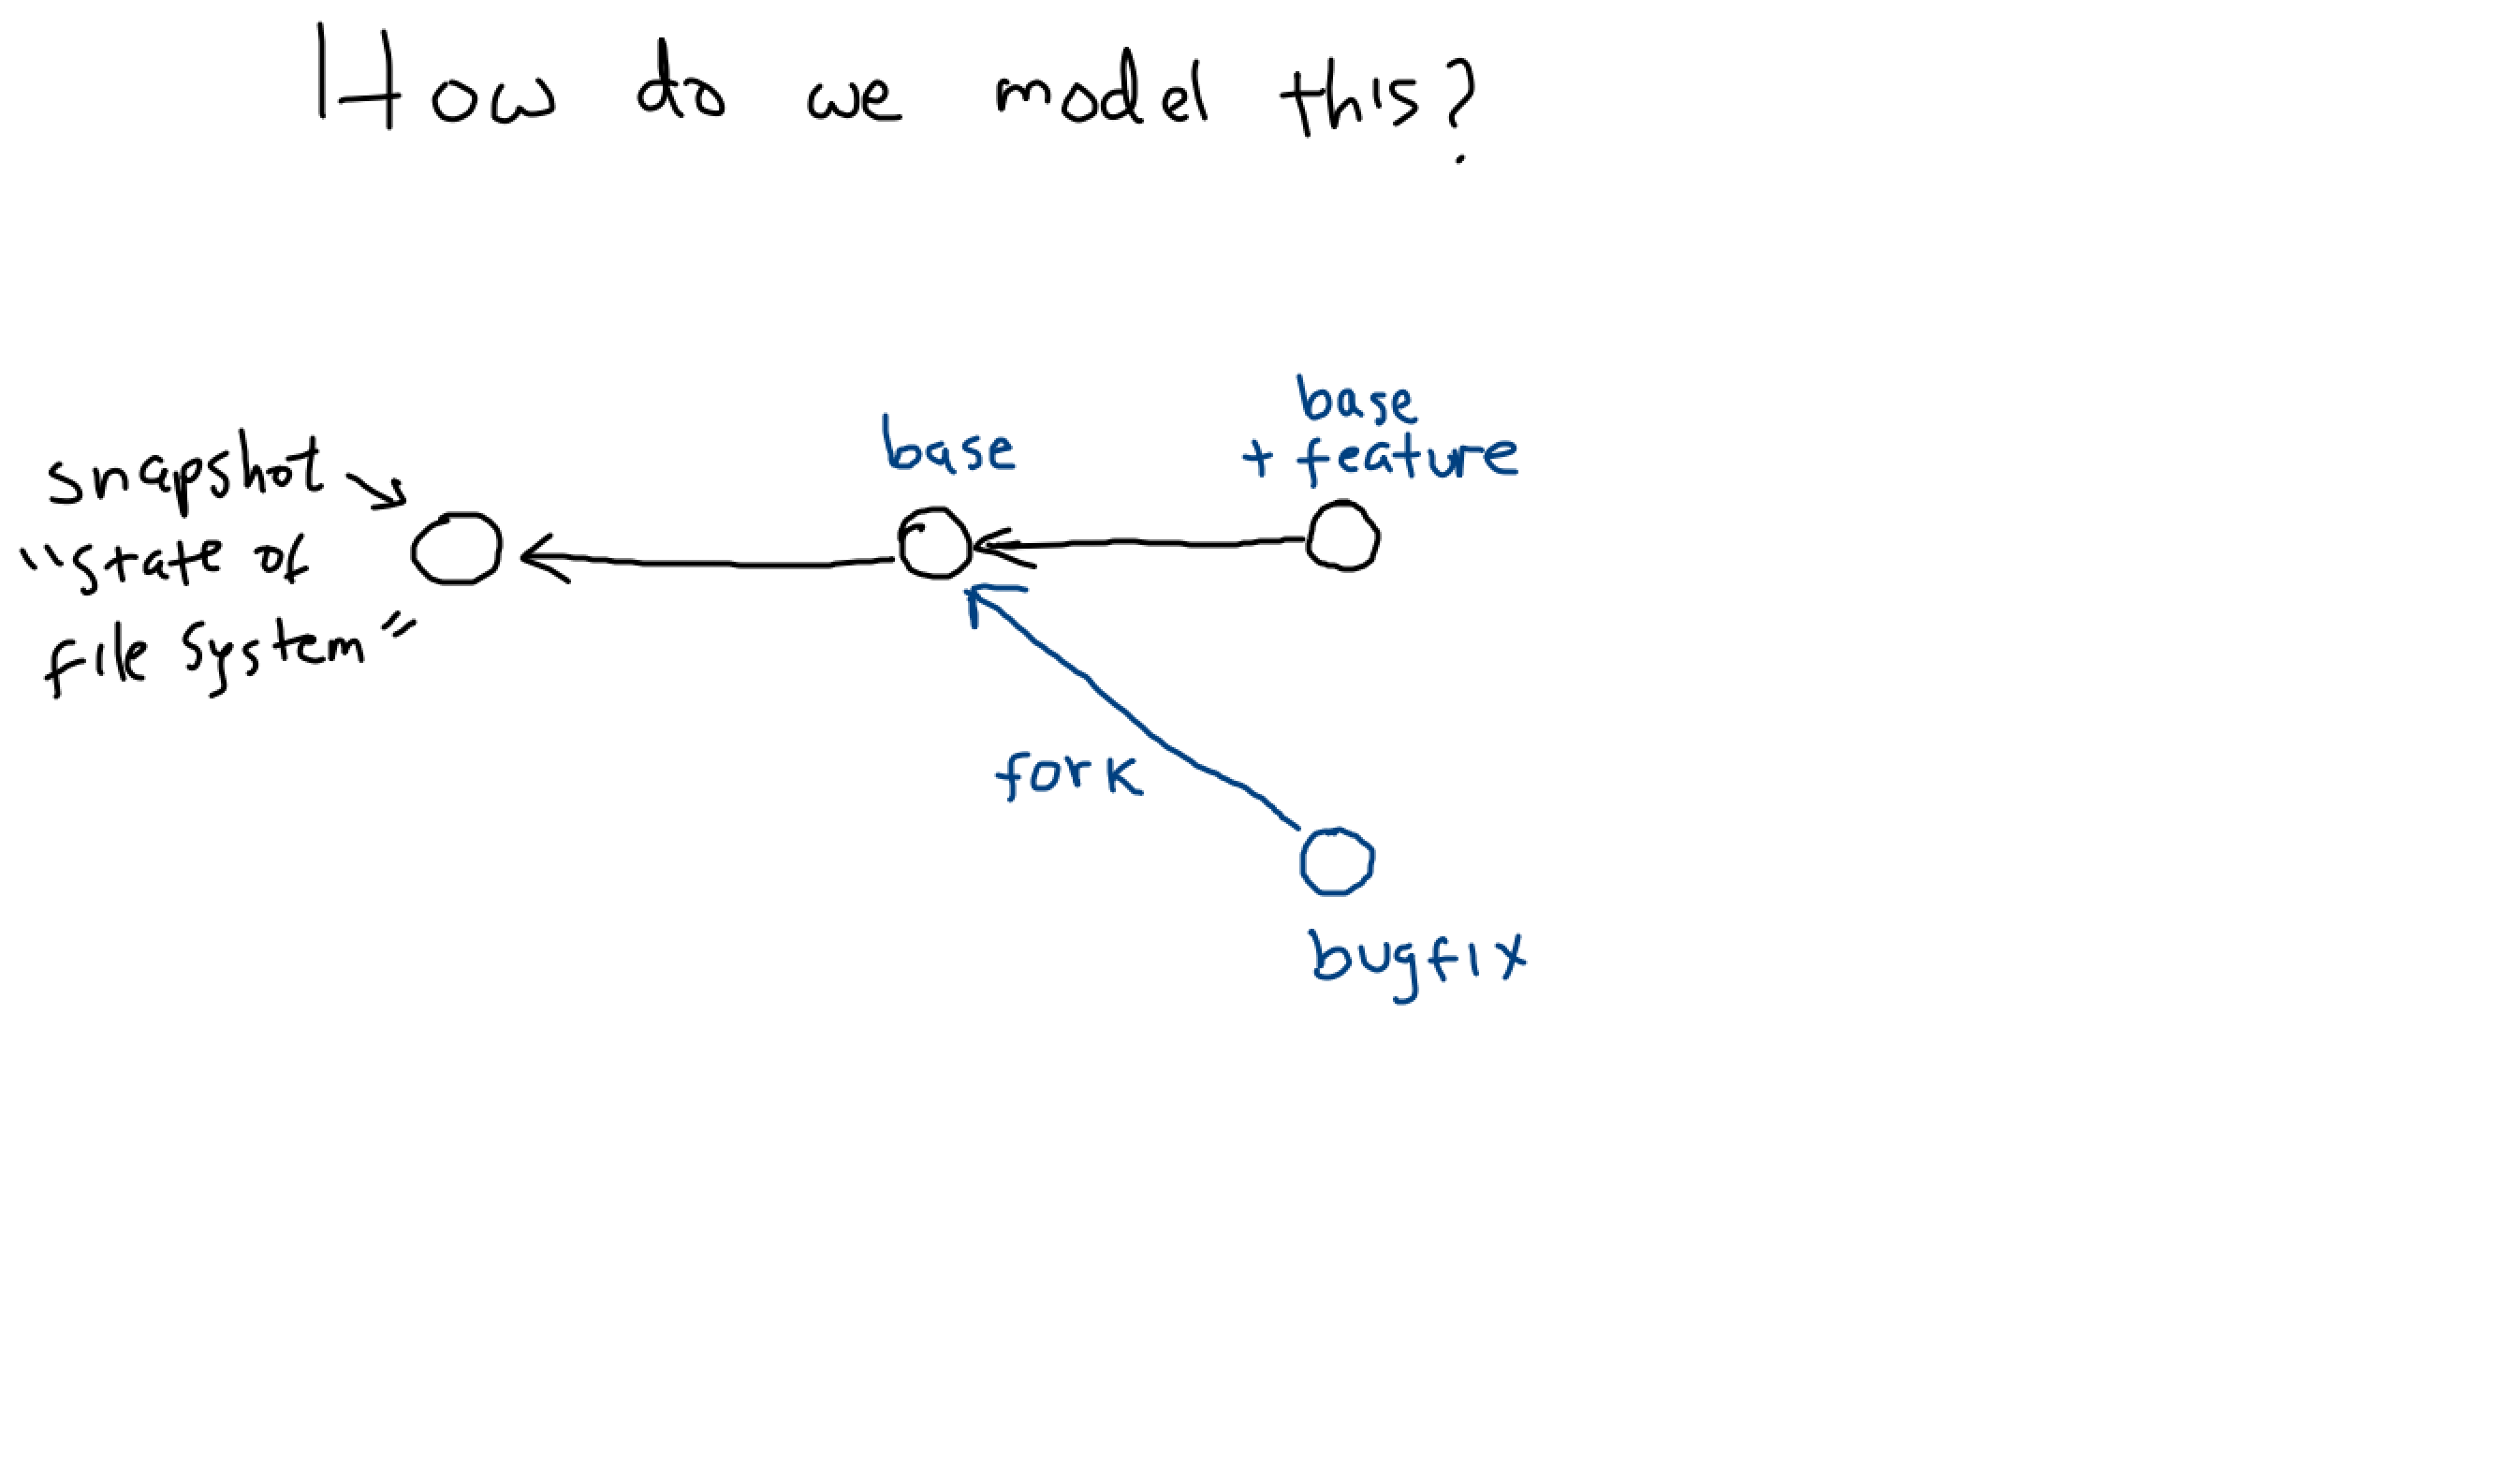 How do we model this?
snapshot
"state of
file system"
base
base
+ feature
fork
bugfix